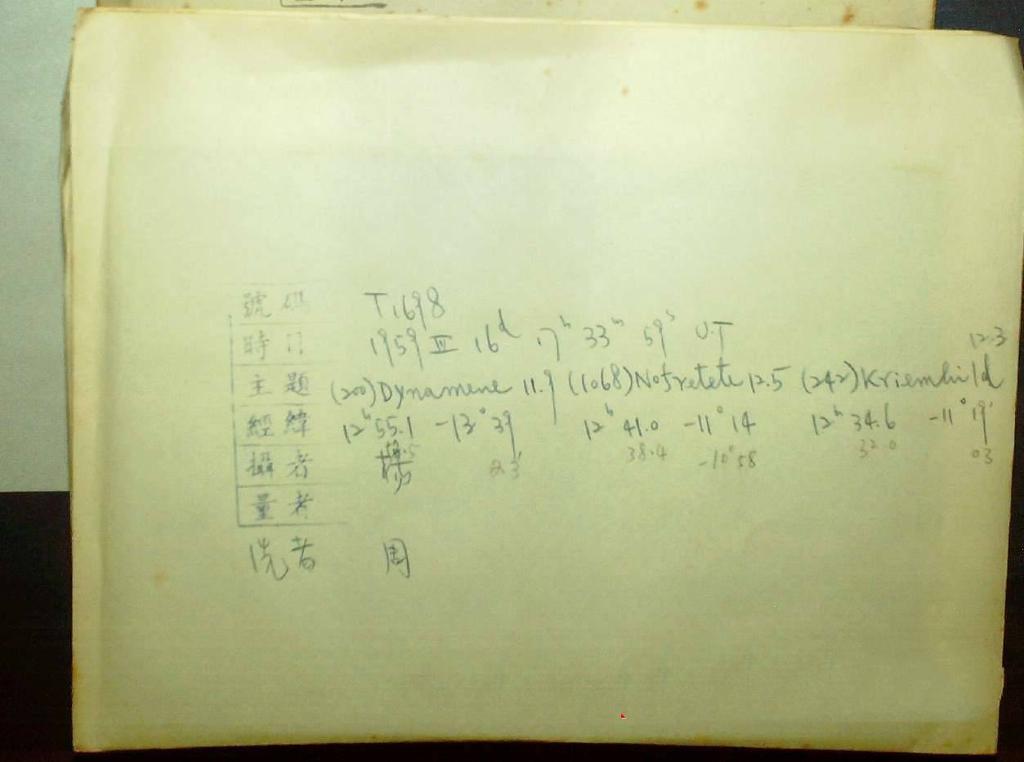 號碼 T1698
時日 1959 III 16d 17h 33m 59s U.T
12.3
主題 (200)Dynamene 11.9 (1068)Nofretete 12.5 (242)Kriemhild
經緯 12h 55.1 -13°39' 12h 41.0 -11°14 12h 34.6 -11°19'
攝者 楊 23' 38.4 -10°58 32.0 03
量者
洗者 周